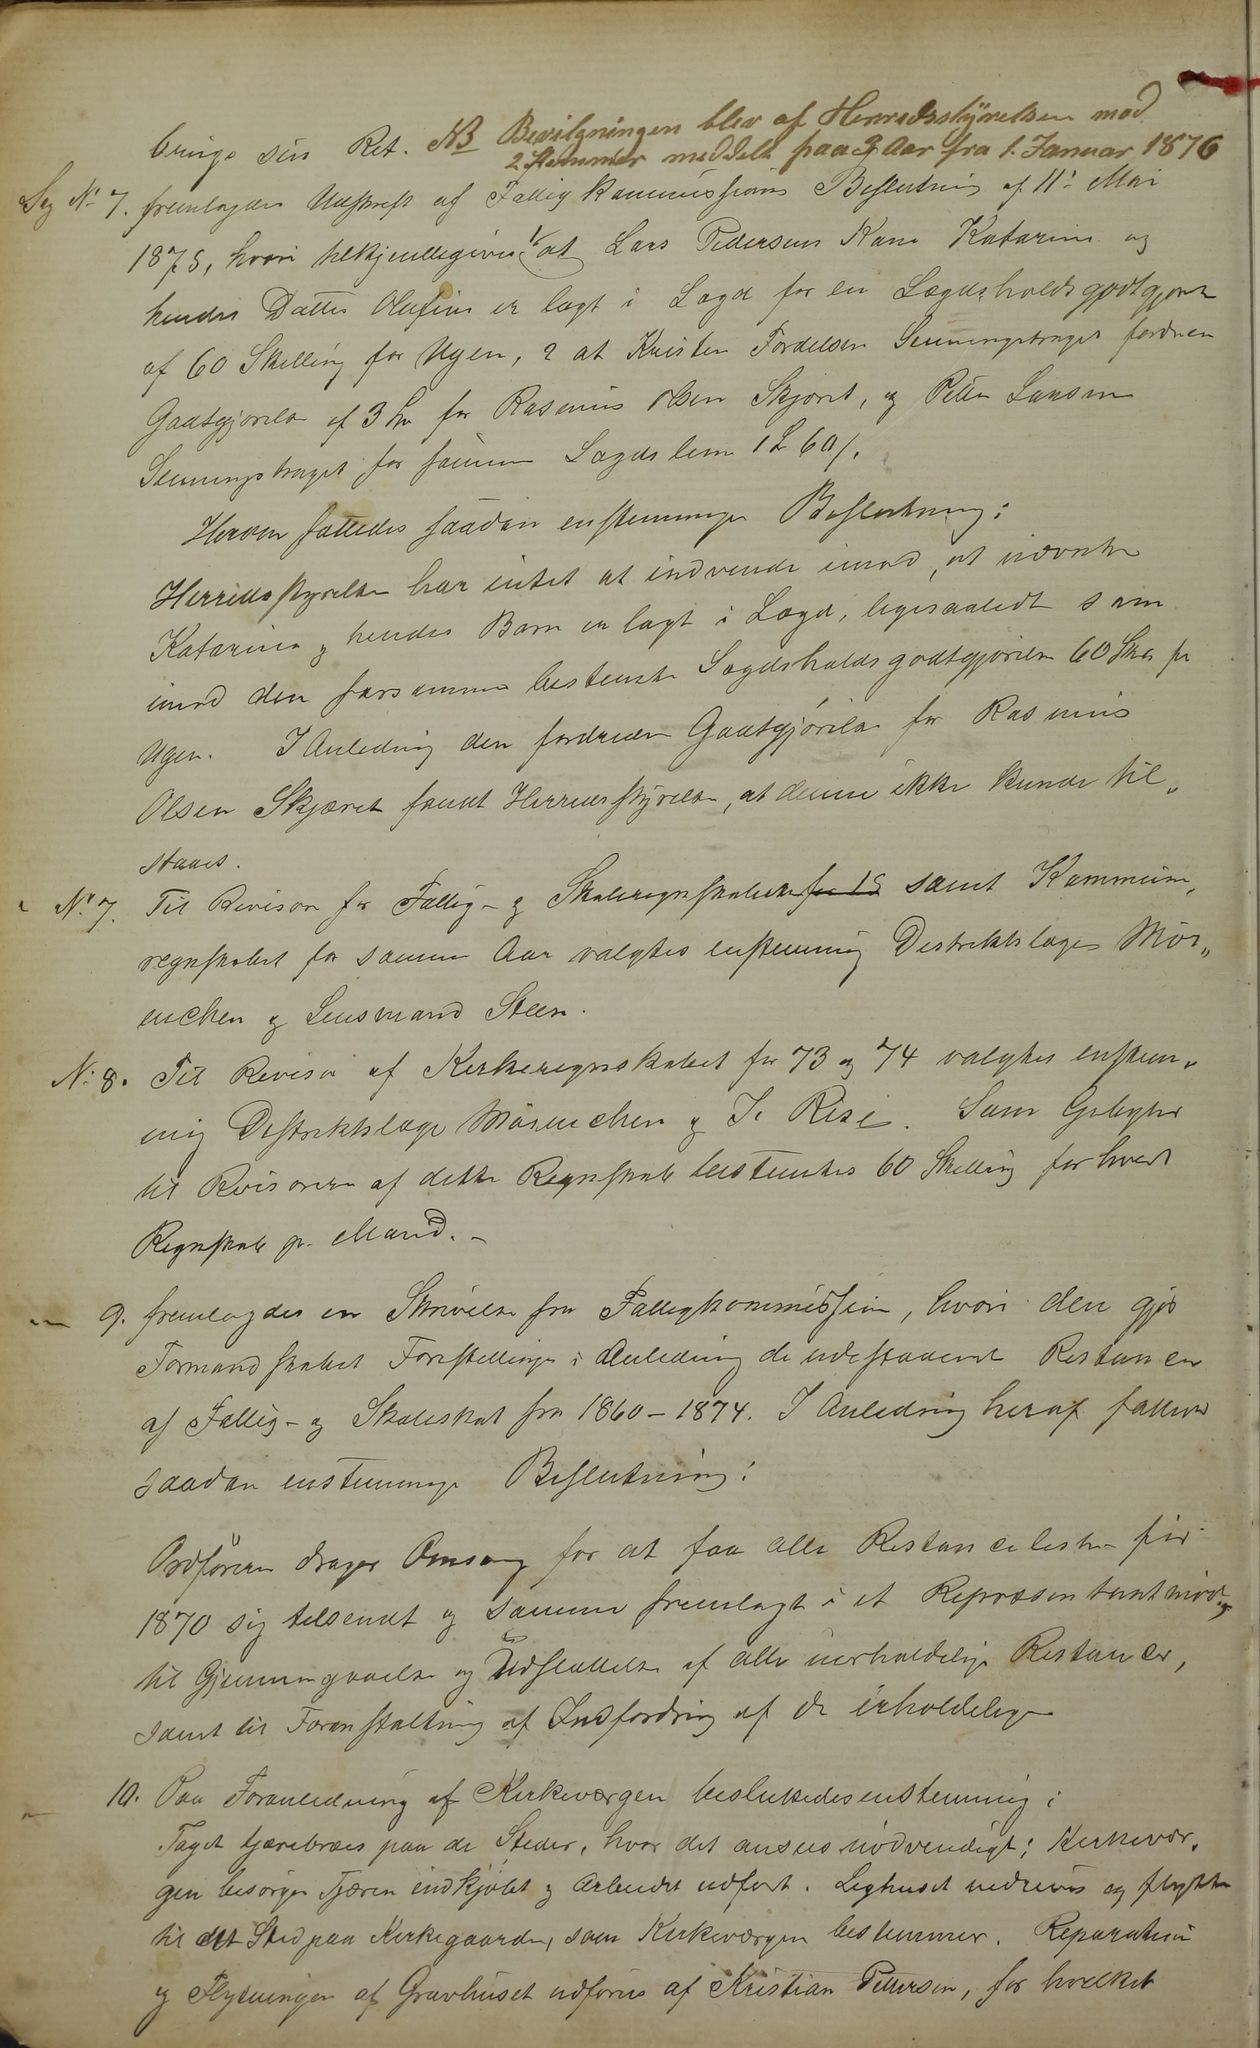 bringe sin Ret. NB Bevilgningen blev af Herredsstyrelsen mod
2 Stemmer meddelt paa 3 Aar fra 1. Januar 1876
Sag No 7. fremlagdes Udskrift af Fattigkommissions Beslutning af 11te Mai
1875, hvori tilkjendegives 1/ at Lars Pedersens Kone Katarina og
hendes Datter Olufine er lagt i Lægd for en Lægdsholdsgodtgjørelse
af 60 Skilling for Ugen, 2 at Kristen Tordelsen Stenningstraget fordrer
Godtgjørelse af 3 for Rasmus Olsen Skjæret, og Peter Larsen
Stenningstraget for samme Lægdslem 1 60/.
Herom fattedes saadan enstemmige Beslutning:
Herredsstyrelsen har intet at indvende imod, at nævnte
Katarina og hendes Barn er lagt i Lægd, ligesaalidt som
imod den forsamme bestemte Lægdsholdsgodtgjørelse 60 Sk pr
Ugen. I Anledning den fordrede Godtgjørelse for Rasmus
Olsen Skjæret fandt Herredsstyrelsen, at denne ikke kunde til„
staaes.
No 7. Til Revisor for Fattig- og Skoleregnskaberne for 18 samt Kommune„
regnskabet for samme Aar valgtes enstemmig Distriktslæge Mør„
enchen og Lensmand Steen.
No 8. Til Revisor af Kirkeregnskabet for 73 og 74 valgtes enstem„
mig Distriktslæge Mørenchen og Rise. Som Gebyhr
til Revisorerne af dette Regnskab bestemtes 60 Skilling for hvert
Regnskab pr. Mand. -
9. fremlagdes en Skrivelse fra Fattigkommission, hvori den gjør
Formandskabet Forestillinger i Anledning de udestaaende Restancer
af Fattig- og Skoleskat fra 1860-1874. I Anledning heraf fattedes
saadan enstemmige Beslutning:
Ordføreren drager Omsorg for at faa alle Restancelister før
1870 sig tilsendt og samme fremlagt i et Repræsentantmøde
til Gjennemgaaelse og Udslettelse af alle uerholdelige Restancer,
samt til Foranstaltning af Indfordring af de erholdelige
10. Paa Foranledning af Kirkeværgen besluttedes enstemmig:
Taget tjærebræes paa de Steder, hvor det ansees nødvendigt; Kirkevær„
gen besørger Tjæren indkjøbt og Arbeidet udført. Lighuset nedrives og flyttes
til det Sted paa Kirkegaarden, som Kirkeværgen bestemmer. Reparation
og Flytningen af Gravhuset udføres af Kristian Pettersen, for hvilket